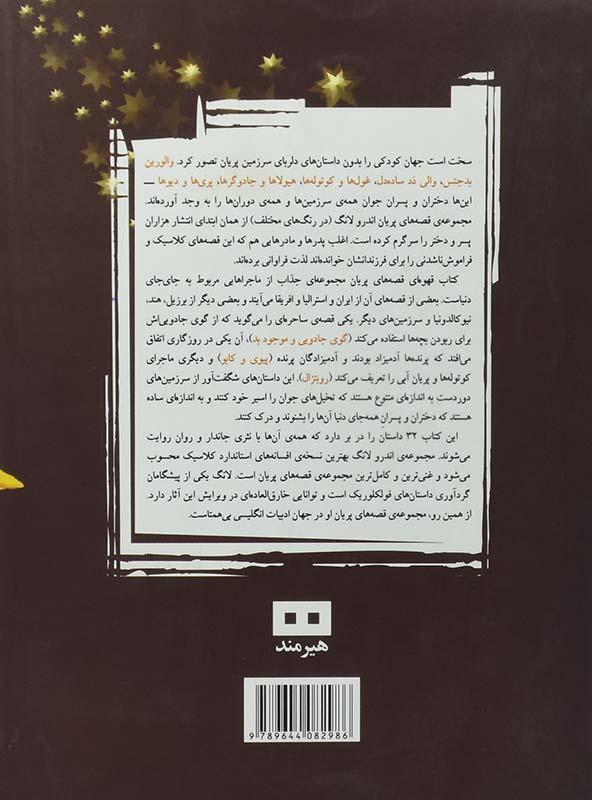 سخت است جهان کودکی را بدون داستان‌های دلربای سرزمین پریان تصور کرد. والورین
بدجنس، والی دَد ساده‌دل، غول‌ها و کوتوله‌ها، هیولاها و جادوگرها، پری‌ها و دیوها —
این‌ها دختران و پسران جوان همه‌ی سرزمین‌ها و همه‌ی دوران‌ها را به وجد آورده‌اند.
مجموعه‌ی قصه‌های پریان اندرو لانگ (در رنگ‌های مختلف) از همان ابتدای انتشار هزاران
پسر و دختر را سرگرم کرده است. اغلب پدرها و مادرهایی هم که این قصه‌های کلاسیک و
فراموش‌ناشدنی را برای فرزندانشان خوانده‌اند لذت فراوانی برده‌اند.
کتاب قهوه‌ای قصه‌های پریان مجموعه‌ی جذاب از ماجراهایی مربوط به جای‌جای
دنیاست. بعضی از قصه‌های آن از ایران و استرالیا و افریقا می‌آیند و بعضی دیگر از برزیل، هند،
نیوکالدونیا و سرزمین‌های دیگر. یکی قصه‌ی ساحره‌ای را می‌گوید که از گوی جادویی‌اش
برای ربودن بچه‌ها استفاده می‌کند (گوی جادویی و موجود بد)، آن یکی در روزگاری اتفاق
می‌افتد که پرنده‌ها آدمیزاد بودند و آدمیزادگان پرنده (پیوی و کابو) و دیگری ماجرای
کوتوله‌ها و پریان آبی را تعریف می‌کند (روبتزال). این داستان‌های شگفت‌آور از سرزمین‌های
دوردست به اندازه‌ای متنوع هستند که تخیل‌های جوان را اسیر خود کنند و به اندازه‌ای ساده
هستند که دختران و پسرانِ همه‌جای دنیا آن‌ها را بشنوند و درک کنند.
این کتاب ۳۲ داستان را در بر دارد که همه‌ی آن‌ها با نثری جاندار و روان روایت
می‌شوند. مجموعه‌ی اندرو لانگ بهترین نسخه‌ی افسانه‌های استاندارد کلاسیک محسوب
می‌شود و غنی‌ترین و کامل‌ترین مجموعه‌ی قصه‌های پریان است. لانگ یکی از پیشگامان
گردآوری داستان‌های فولکلوریک است و توانایی خارق‌العاده‌ای در ویرایش این آثار دارد.
از همین رو، مجموعه‌ی قصه‌های پریان او در جهان ادبیات انگلیسی بی‌همتاست.
هیرمند
9 789644 082986